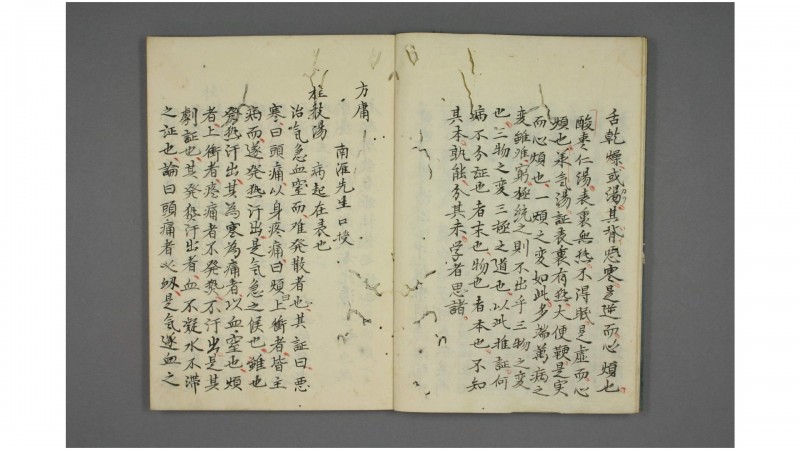 舌乾燥或渇其背悪寒是逆而心煩也
酸棗仁湯表裏無熱不得眠是虚而心
煩也承气湯証表裏有熱大便鞕是実
而心煩也一煩之変如此多端萬病之
変雖難窮極統之則不出乎三物之変
也三物之変三極之道也以此推証何
病不分証也者末也物也者本也不知
其本孰能分其末学者思諸
方庸
南涯先生口授
桂枝湯 病起在表也
治气急血窒而难発散者也其証曰悪
寒曰頭痛以身疼痛曰煩曰上衝者皆主
病而遂発熱汗出是气急之候也雖也
発熱汗出其為寒為痛者以血窒也煩
者上衝者疼痛者不発熱不汗出是其
劇証也其発熱汗出者血不凝水不滞
之証也論曰頭痛者必衂是气逐血之